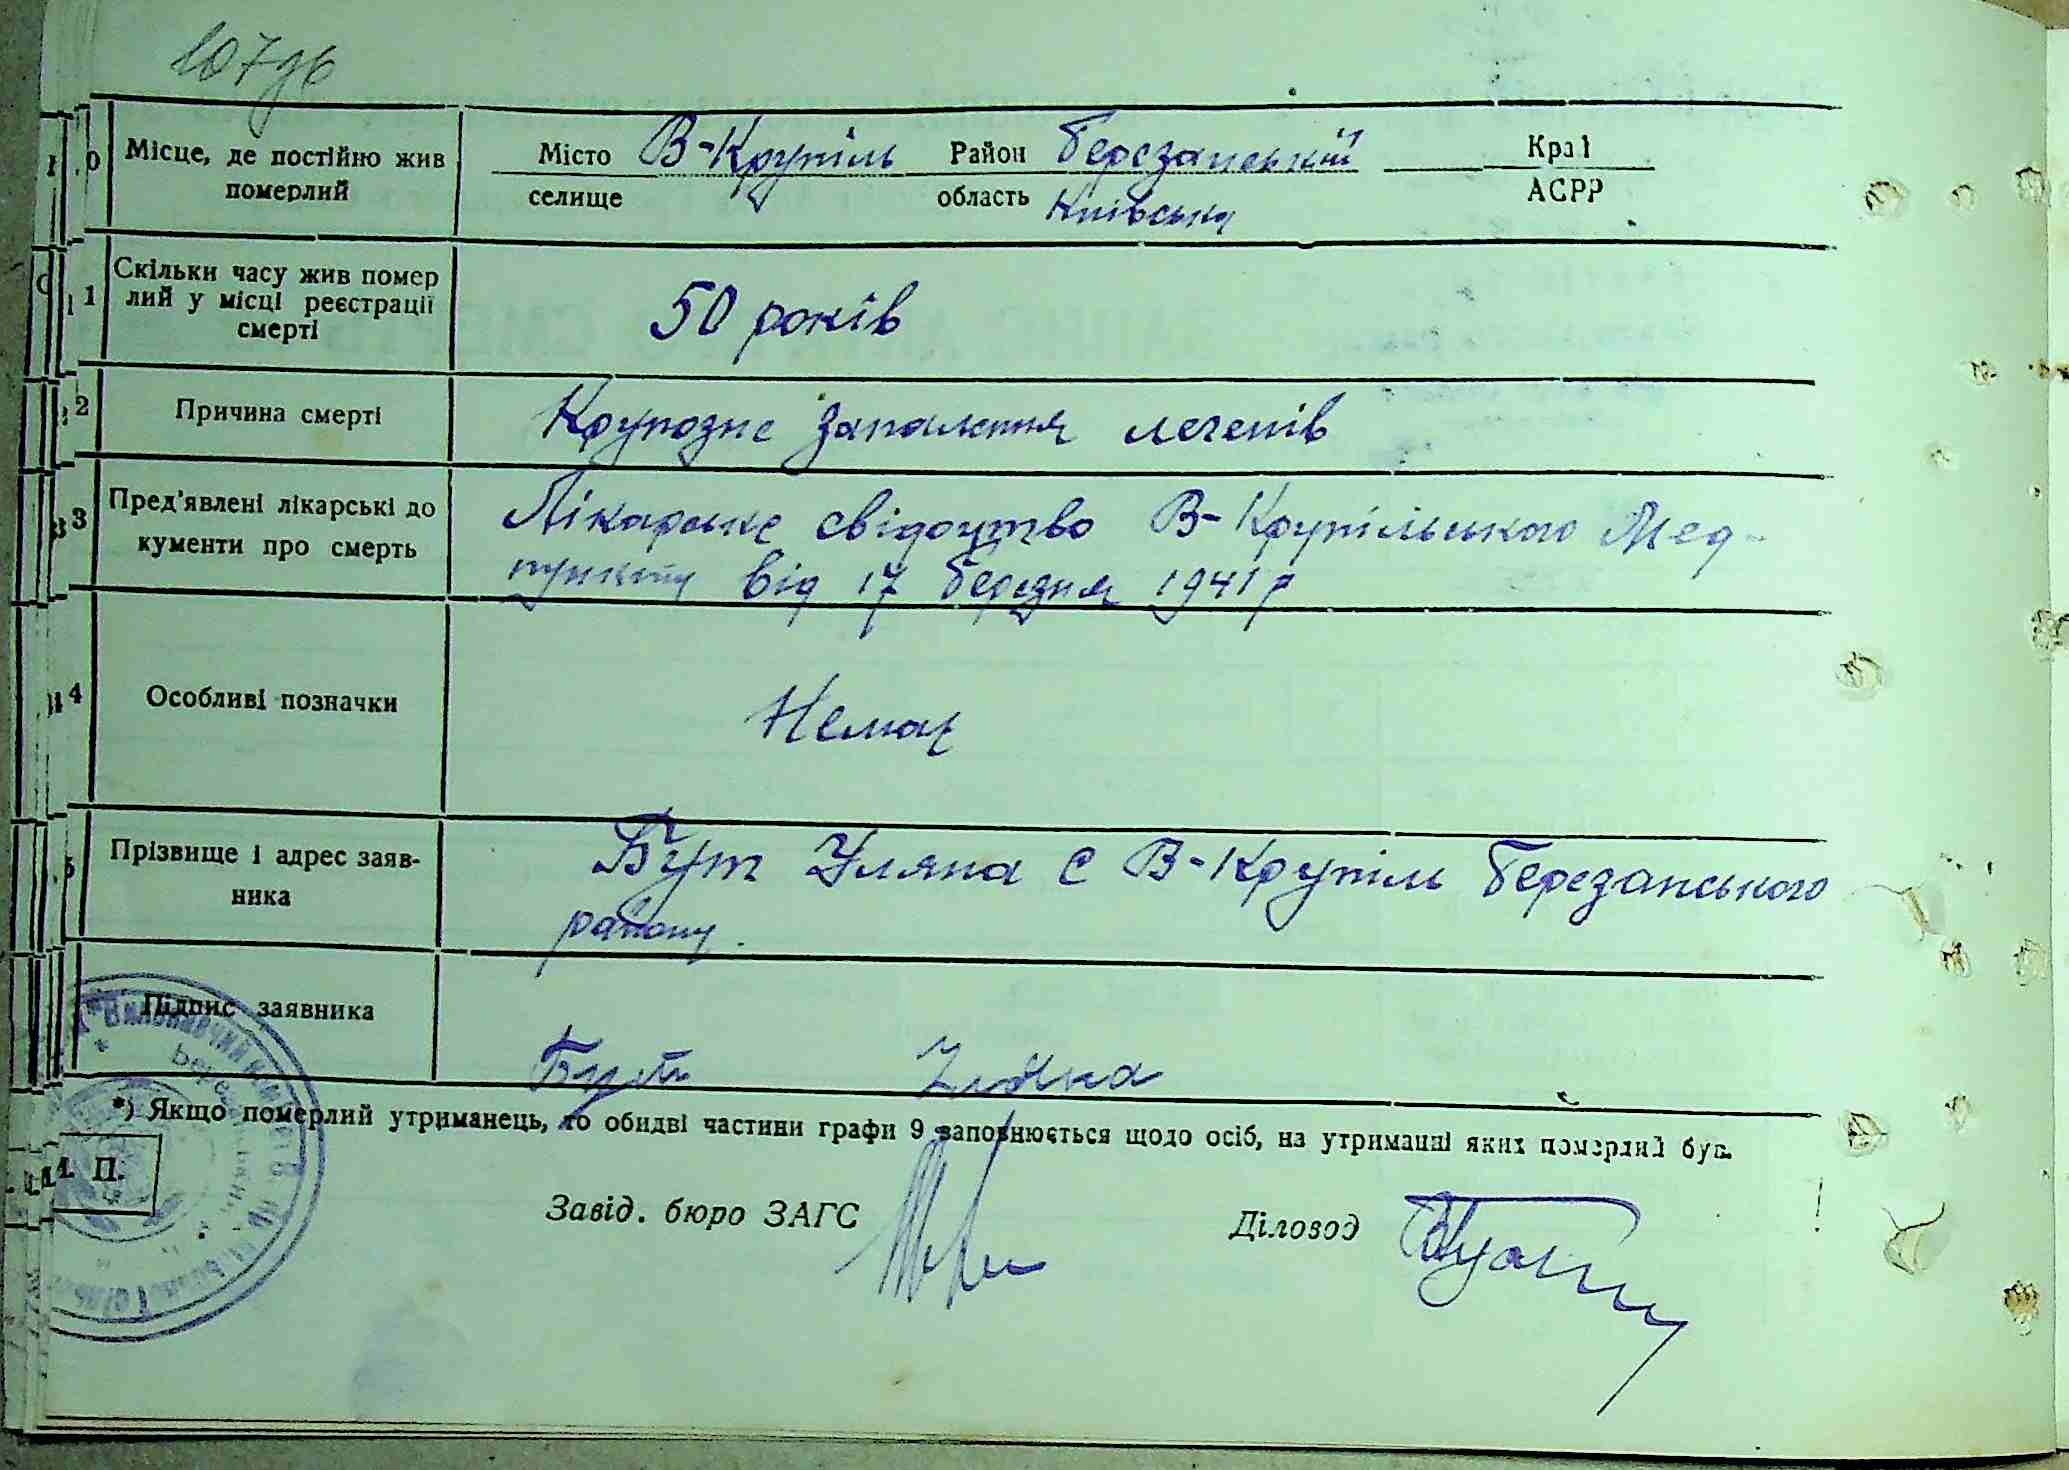 107
10 Місце, де постійно жив Місто В-Крупіль Район Березанський Край
померлий селище область Київська АСРР
11 Скільки часу жив помер
лий у місці реєстрації 50 років
смерті
2 Причина смерті Крупозне запалення легенів
3 Пред'явлені лікарські до Лікарське свідоцтво В-Крупільського Мед-
кументи про смерть пункту від 17 березня 1941 р
4 Особливі позначки Немає
5 Прізвище і адрес заяв- Бут Уляна с В-Крупіль Березанського
ника району.
Підпис заявника
Бут Уляна
*) Якщо померлий утриманець, то обидві частини графи 9 заповнюється щодо осіб, на утриманні яких померлий був.
М. П.
Завід. бюро ЗАГС Діловод